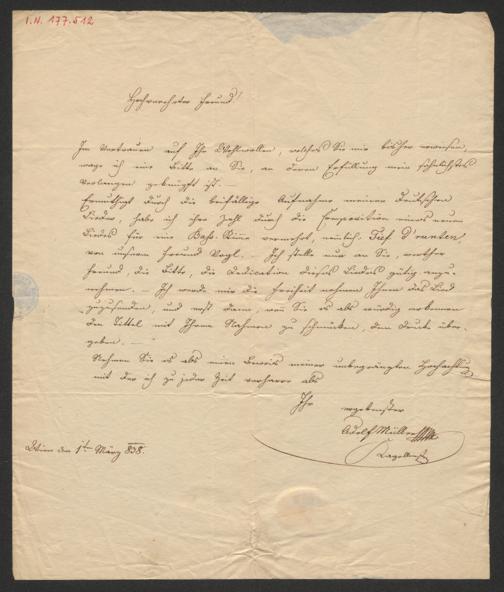 I.N. 177.512
Hochverehrter Freund!
Im Vertrauen auf Ihr Wohlwollen, welches Sie mir bisher erwiesen,
wage ich eine Bitte an Sie, an deren Erfüllung mein sehnlichstes
Verlangen geknüpft ist. —
Ermuthigt durch die beifällige Aufnahme meiner Deutschen
Lieder, habe ich ihre Zahl durch die Composition eines neuen
Liedes für eine Baß-Stimme vermehrt, nämlich: Tief d'runten,
von unserm Freund Vogl. — Ich stelle nun an Sie, werther
Freund, die Bitte, die Dedication dieses Liedes gütig anzu-
nehmen. — Ich werde mir die Freiheit nehmen Ihnen das Lied
zuzusenden, und erst dann, wenn Sie es als würdig erkennen
den Tittel mit Ihrem Nahmen zu schmücken, dem Drucke über-
geben. —
Nehmen Sie es als einen Beweis meiner unbegränzten Hochachtung
mit der ich zu jeder Zeit verharre als
Ihr ergebenster
Adolf Müller
Kapellmst
Wien den 1ten März 838.